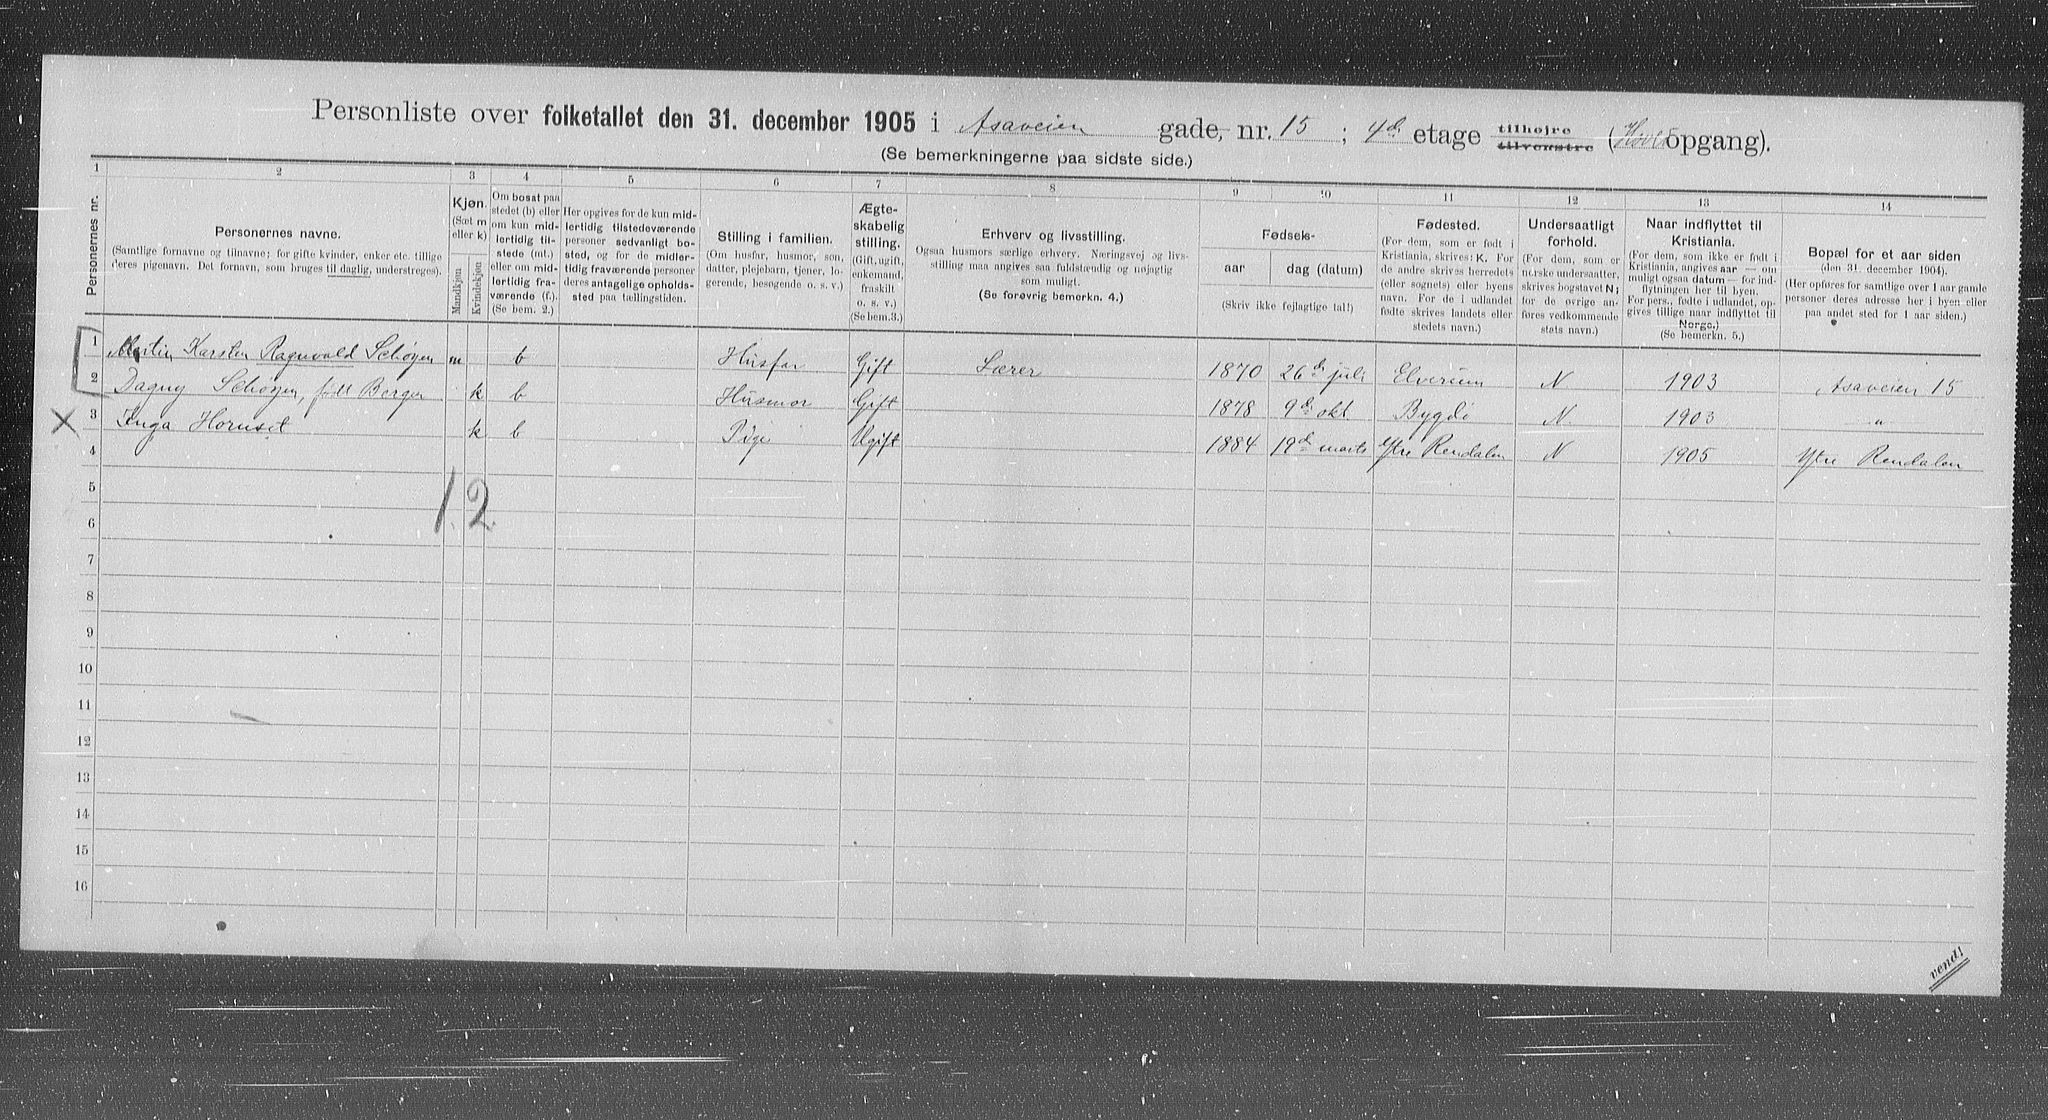 Personliste over folketallet den 31. december 1905 i Asaveien gade, nr. 15 ; 4de etage tilhøjre tilvenstre (Hoved opgang).
(Se bemerkningerne paa sidste side.)
1 2 3 4 5 6 7 8 9 10 11 12 13 14
Personernes nr.
Personernes navne.
(Samtlige fornavne og tilnavne; for gifte kvinder, enker etc. tillige
deres pigenavn. Det fornavn, som bruges til daglig, understreges).
Kjøn.
(Sæt m
eller k)
Mandkjøn
Kvindekjøn
Om bosat paa
stedet (b) eller
om kun mid-
lertidig til-
stede (mt.)
eller om mid-
lertidig fra-
værende (f.).
(Se bem. 2.)
Her opgives for de kun mid-
lertidig tilstedeværende
personer sedvanligt bo-
sted, og for de midler-
tidig fraværende personer
deres antagelige opholds-
sted paa tællingstiden.
Stilling i familien.
(Om husfar, husmor, søn,
datter, plejebarn, tjener, lo-
gerende, besøgende o. s. v.)
Ægte-
skabelig
stilling.
(Gift, ugift,
enkemand,
fraskilt
o. s. v.)
(Se bem.3.)
Erhverv og livsstilling.
Ogsaa husmors særlige erhverv. Næringsvej og livs-
stilling maa angives saa fuldstændig og nøjagtig
som muligt.
(Se forøvrig bemerkn. 4.)
Fødsels-
aar
dag (datum)
(Skriv ikke fejlagtige tal!)
Fødested.
(For dem, som er født i
Kristiania, skrives: K. For
de andre skrives herredets
(eller sognets) eller byens
navn. For de i udlandet
fødte skrives landets eller
stedets navn.)
Undersaatligt
forhold.
(For dem, som er
norske undersaatter,
skrives bogstavet N;
for de øvrige an-
føres vedkommende
stats navn.)
Naar indflyttet til
Kristiania.
(For dem, som ikke er født i
Kristiania, angives aar — om
muligt ogsaa datum — for ind-
flytningen her til byen.
For pers., fødte i udlandet, op-
gives tillige naar indflyttet til
Norge.)
(Se bemerkn. 5.)
Bopæl for et aar siden
(den 31. december 1904).
(Her opføres for samtlige over 1 aar gamle
personer deres adresse her i byen eller
paa andet sted for 1 aar siden.)
1 Martin Karsten Ragnvald Schøyen m b Husfar Gift Lærer 1870 26de juli Elverum N 1903 Asaveien 15
2 Dagny Schøyen, født Berger k b Husmor Gift 1878 9de okt Bygdø N. 1903 "
3 Inga Hornset k b Pige Ugift 1884 19de marts Ytre Rendalen N 1905 Ytre Rendalen
4
5
1. 2.
6
7
8
9
10
11
12
13
14
15
16
vend!